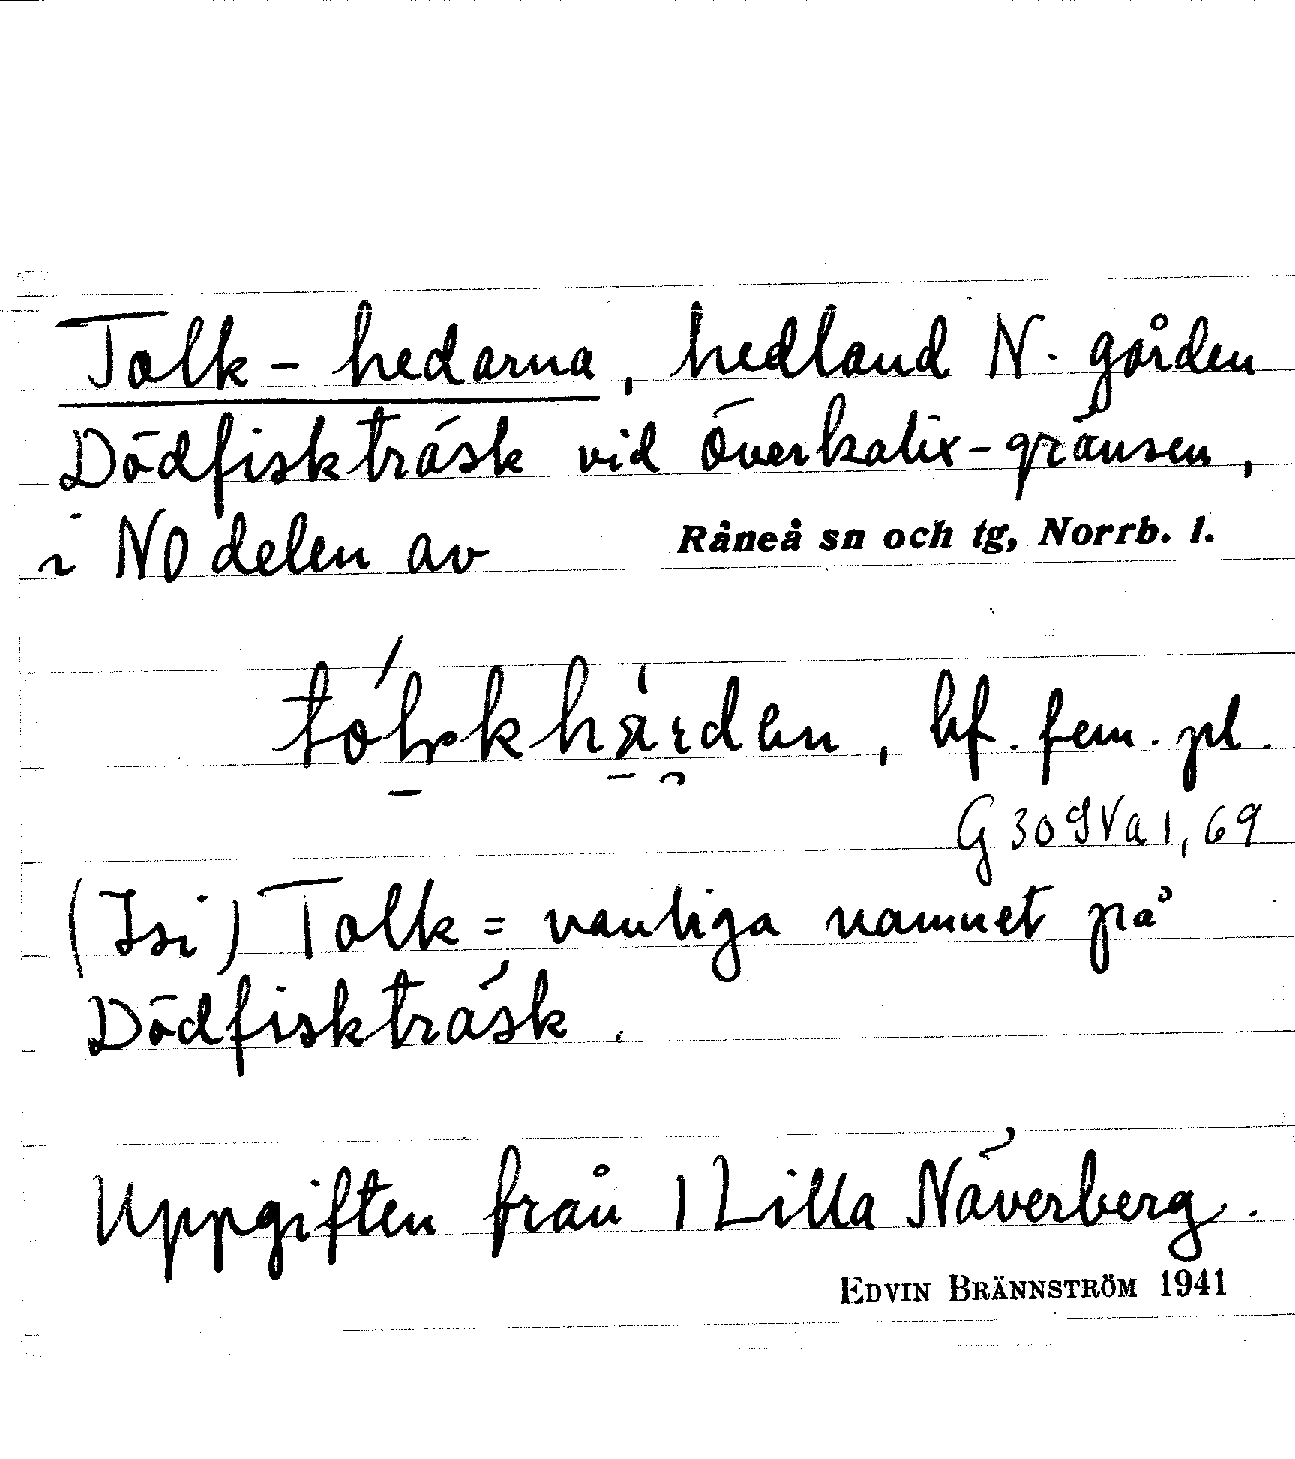 Tolk-hedarna, hedland N. gården
Dödfiskträsk vid Överkalix-gränsen,
i NO delen av Råneå sn och tg, Norrb. l.
bf. fem. pl.
G 30 9Va 1, 69
(Isi) Tolk = vanliga namnet på
Dödfiskträsk.
Uppgiften från 1 Lilla Näverberg.
EDVIN BRÄNNSTRÖM 1941